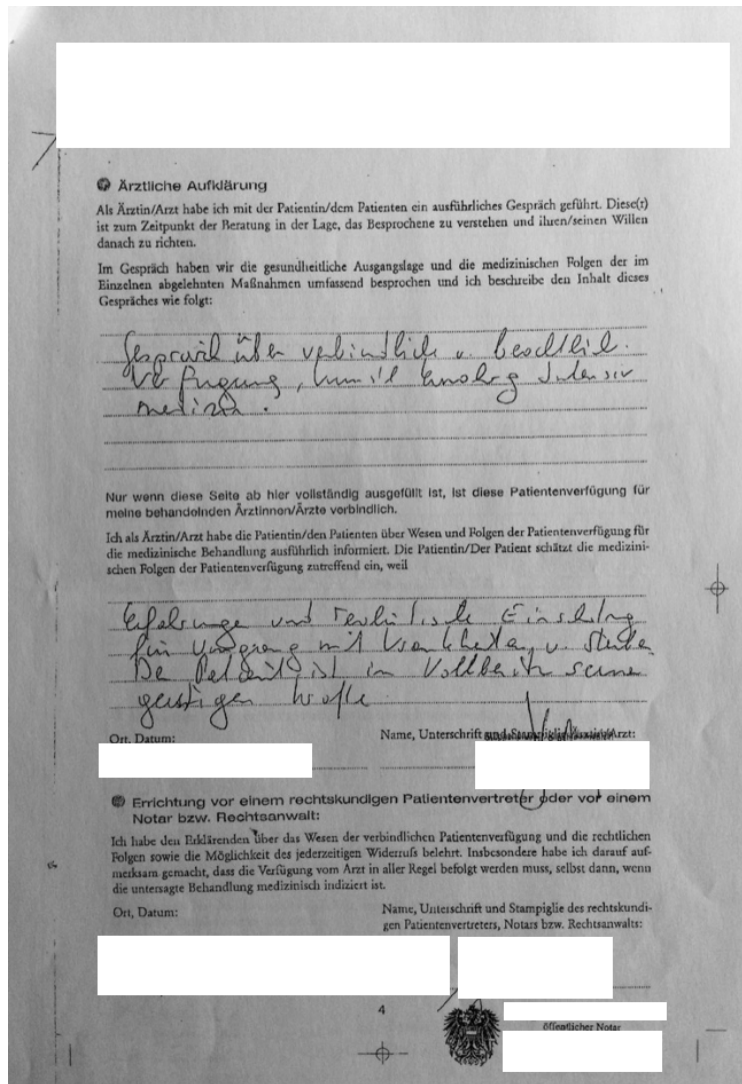 Ärztliche Aufklärung
Als Ärztin/Arzt habe ich mit der Patientin/dem Patienten ein ausführliches Gespräch geführt. Diese(r)
ist zum Zeitpunkt der Beratung in der Lage, das Besprochene zu verstehen und ihren/seinen Willen
danach zu richten.
Im Gespräch haben wir die gesundheitliche Ausgangslage und die medizinischen Folgen der im
Einzelnen abgelehnten Maßnahmen umfassend besprochen und ich beschreibe den Inhalt dieses
Gespräches wie folgt:
Gespräch über verbindliche u. beachtlich.
Verfügung, künstl Ernährg Intensiv
medizin.
Nur wenn diese Seite ab hier vollständig ausgefüllt ist, ist diese Patientenverfügung für
meine behandelnden Ärztinnen/Ärzte verbindlich.
Ich als Ärztin/Arzt habe die Patientin/den Patienten über Wesen und Folgen der Patientenverfügung für
die medizinische Behandlung ausführlich informiert. Die Patientin/Der Patient schätzt die medizini-
schen Folgen der Patientenverfügung zutreffend ein, weil
Erfahrunge und realistische Einschätzg
für Umgang mit Krankheiten u. Sterben
Der Patient ist im Vollbesitz seiner
geistigen Kräfte
Ort, Datum:
Name, Unterschrift und Stampiglie Ärztin/Arzt:
Errichtung vor einem rechtskundigen Patientenvertreter oder vor einem
Notar bzw. Rechtsanwalt:
Ich habe den Erklärenden über das Wesen der verbindlichen Patientenverfügung und die rechtlichen
Folgen sowie die Möglichkeit des jederzeitigen Widerrufs belehrt. Insbesondere habe ich darauf auf-
merksam gemacht, dass die Verfügung vom Arzt in aller Regel befolgt werden muss, selbst dann, wenn
die untersagte Behandlung medizinisch indiziert ist.
Ort, Datum:
Name, Unterschrift und Stampiglie des rechtskundi-
gen Patientenvertreters, Notars bzw. Rechtsanwalts:
4
öffentlicher Notar